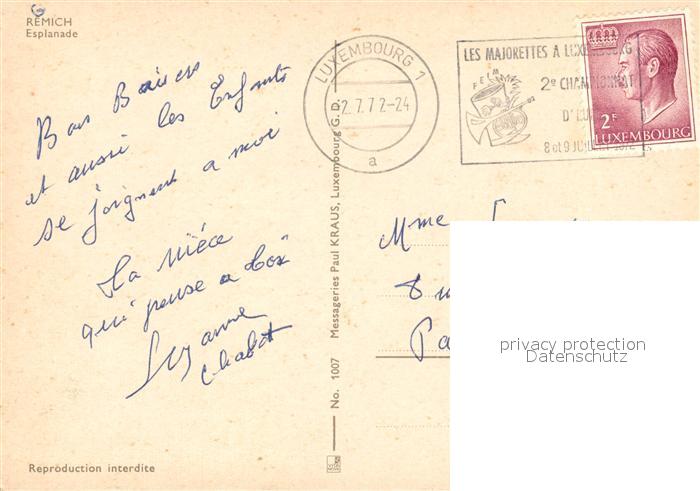 REMICH
Esplanade
Bons Baisers
et aussi les Enfants
se joignent a moi
Ta nièce
qui pense a toi
Suzanne
Chabot
Reproduction interdite
No. 1007 Messageries Paul KRAUS, Luxembourg G. D.
LUXEMBOURG 1
2.7.72-24
a
LES MAJORETTES A LUXEMBOURG
2e CHAMPIONNAT
8 et 9 JUILLET 1972
2F
LUXEMBOURG
Mme
8
Pa
privacy protection
Datenschutz